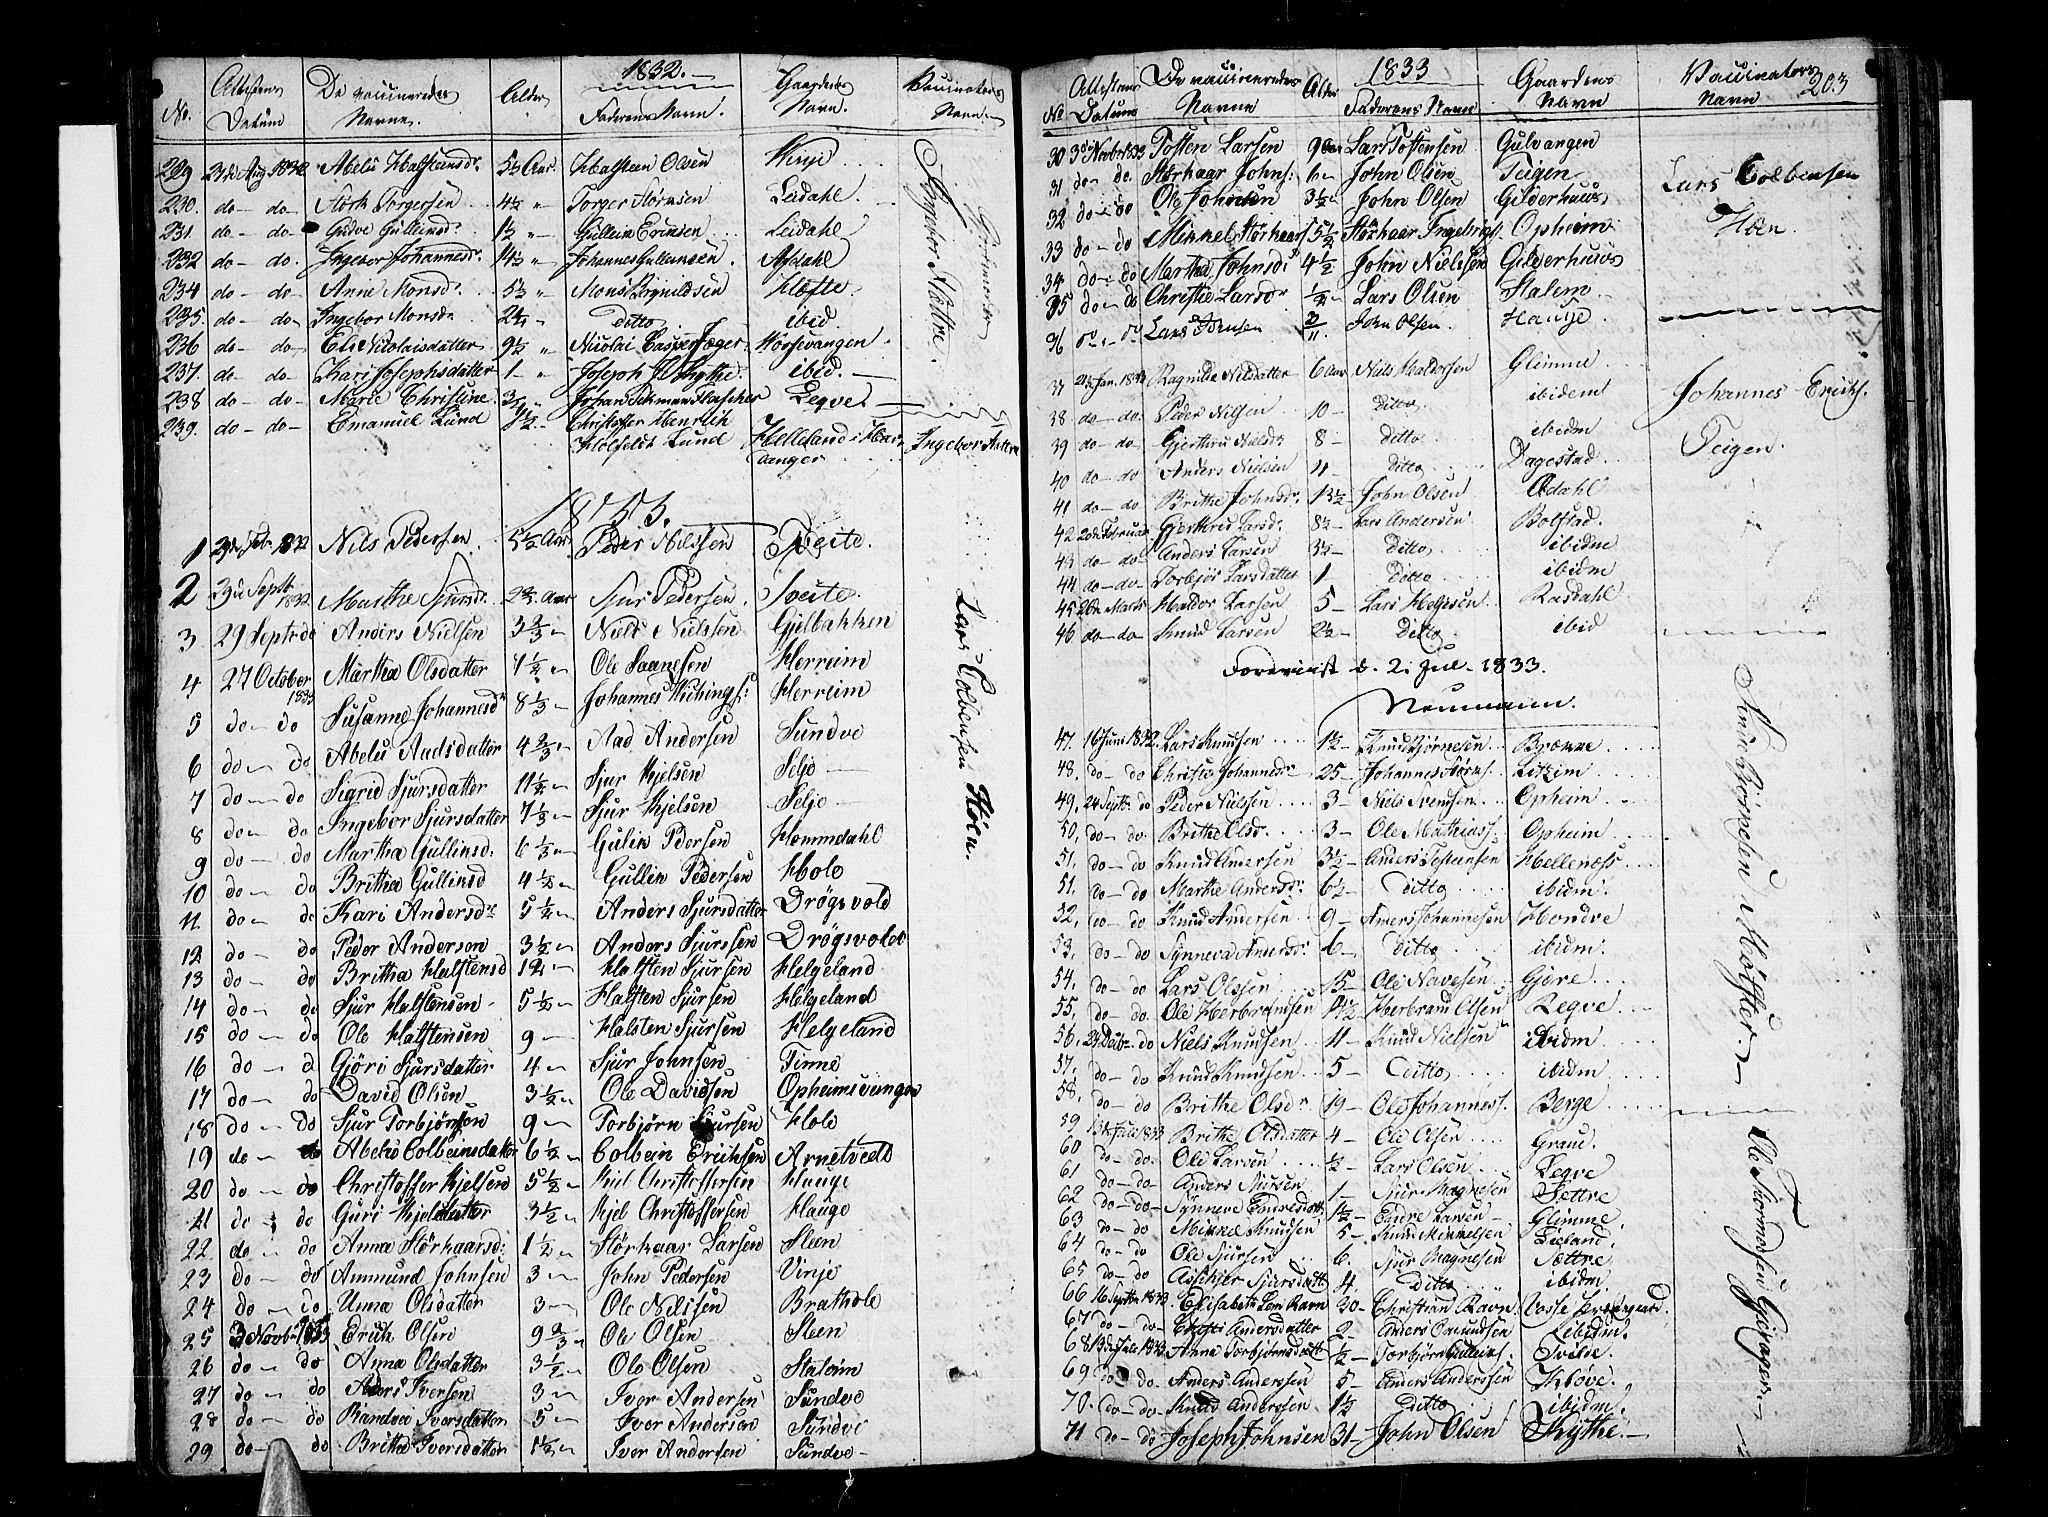 1832.
No. Attestens Datum De vaccineredes Navne. Alder Faderens Navn. Gaardenes Navn. Vaccinatorens Navn.
229 23de Aug 1832 Abelu Halsteinsdr. 5½ Aar. Halstein Olsen Vinje
230. do - do Störk Torgersen 4½ " Torger Störksen Leidahl
231. do - do Gudve Gulleinsd. 1½ " Gullein Ericksen Leidahl
232 do - do. Ingebor Johannesd. 4½ " Johannes Gulleinsen. Afdahl
234 do - do Anne Monsd. " Mons Brynildsen Hefte
235. do - do Ingebor Monsd. ditto ibid
236 do - do Eli Nicolaisdatter 9½ " Nicolai Casper Jæger Vossevangen
237. do - do Kari Josephsdatter 1 " Joseph Kythe. ibid.
238 do - do Marie Christine. Fleischer Leqve
239. do - do Emanuel Lund 8½ Christoffer Henrich Lund Helleland i Hardanger Ingebor Nættre
Ingebor Nættre Gjordmoder
1833.
1 23de Feb. 1832 Nils Pedersen 5½ Aar Peder Nilssen Tveite.
2 3de Septb 1832 Marthe Sjursd. Aar Sjur Pedersen Tveite
3 29 Septr do Anders Nielsen 3⅔ Niels Nielssen Gilbakken
4 27 October 1833 Martha Olsdatter 1½ Ole Saanesen Herreim
5 do - do Susanne Johannesd 8⅓ Johannes Wichingss: Herreim
6 do - do Abelu Aadsdatter 4⅔ Aad Andersen Sundve
7 do - do Sigrid Sjursdatter 11½ Sjur Kjelsen Seljo
8 do - do Ingebor Sjursdatter 7⅓ Sjur Kjelsen Seljo
9 do - do Martha Gullinsd: 6⅓ Gulin Pedersen Hommdahl
10 do - do Britha Gullinsd 4½ Gullin Pedersen Hole
11 do - do Kari Andersdr 5½ Anders Sjursdatter Drögsvold
12 do - do Peder Andersen 3½ Anders Sjurssen Drögsvold
13 do - do Britha Halstensd Halsten Sjursen Helgeland
14 do - do Sjur Halstensen 5½ Halsten Sjursen Helgeland
15 do - do Ole Halstensen 9 Halsten Sjursen Helgeland
16 do - d Gjöri Sjursdatter 4 Sjur Johnsen Finne
17 do - do David Olsen 3½ Ole Davidsen Opheimsvangen
18 do - do Sjur Torbjørnsen 9 Torbjørn Sjursen Hole
19 do - do Abelu Colbeinsdatter 6½ Colbein Erichsen Arnetvedt
20 do - do Christoffer Kjelsen 5½ Kjel Christoffersen Hauge
21 do - do Guri Kjelsdatter 3½ Kjel Christoffersen Hauge
22 do - do Anna Störkaarsd: 1½ Störkaar Larsen Steen
23 do - do Ammund Johnsen 3 John Pedersen Vinje
24 do - do Unna Olsdatter 3 Ole Nilssen Brathole
25 3 Novbr 1833 Erick Olsen 9⅔ Ole Olsen Steen
26 do - do Anna Olsdatter 3½ Ole Olsen Staleim
27 do - do Anders Iversen 3 Iver Andersen Sundve
28 do - do Randve Iversdatter 5 Iver Andersen Sundve
29 do - do Britha Iversdatter 1½ Iver Andersen Sundve
Lars Colbensen Höen.
203
1833
No Attestens Datum De vaccineredes Navne Alder Faderens Navn Gaardens Navn Vaccinatorens Navn
30 3de Novbr 1833 Tosten Larsen 9 Aar Lars Tostensen Gulvangen
31 do - do. Störkaar Johns: 6 John Olsen Teigen
32 do - do Ole Johnsen 3½ John Olsen Gilderhuus
33 do - do Mikkel Störkaars 5½ Störkaar Ingebrigs. Opheim
34 do - do Martha Johnsd: 4½ John Nielssen Gilderhuus
35 do - do Christie Larsdr ½ Lars Olsen Stalem
36 do - do Lars Johnsen John Olsen. Hauge
Lars Colbensen Höen.
37 Jan. 1833 Ragnilde Nilsdatter 6 Aar Nils Haldorsen Glimme
38 do - do. Peder Nilsen 10 - ditto ibidem
39 do - do Gjertrud Nilsd 8 - ditto ibidm
40 do - do Anders Nielsen ditto Dagestad
41 do - do Brithe Johnsdr. John Olsen Edahl
42 Februar Gjertrud Larsdr. 8½ Lars Andersen Bolstad.
43 do - do. Anders Larsen 3½ ditto ibidm
44 do - do. Torbjör Larsdatter 1 ditto ibidm
45 Marts Haldor Larsen 5 - Lars Helgesen Rasdahl
46 do - do Knud Larsen 2½ ditto ibid
Johannes Erichs. Teigen.
Foreviist d. 2. Jul. 1833.
Neumann.
47. 16 Juni 1832. Lars Knudsen 1½ Knud Bjørnesen Brække
48. do - do Christie Johannesdr 25 - Johannes Störks. Litheim
49. 24 Septbr do Peder Nielssen 3 - Niels Svendsen Opheim
50. do - do. Brithe Olsdr. 3 - Ole Mathiass. Opheim
51. do - do Knud Andersen 3½ Anders Tosteinsen Hellenæss
51. do - do Marthe Andersdr 6½ ditto ibidm.
52. do - do Knud Andersen 9 - Anders Johannesen Hondve
53. do - do Synneva Andersdr 6 - ditto ibidm.
54. do - do Lars Olssen 15 - Ole Navesen Gjøre
55. do - do. Ole Herbrandsen 4½ Herbrand Olsen Leqve
56. Decbr. do Niels Knudsen 11 - Knud Nielsen ibidm
57. do - do Knud Knudsen 5 - ditto ibidm
58. do - do Brithe Olsdr 19 - Ole Johanness. Berge
59 Juli 1833 Brithe Olsdatter 4 - Ole Olsen Graue.
60 do - do. Ole Larsen ½ - Lars Olsen Leqve
61 do - do Anders Sjursen 1 - Sjur Magnesen Sættre
62 do - do - Synneve Endresdatt 1½ - Endre Larsen - Glimme.
63 do - do Mikkel Knudsen 5 - Knud Mikkelsen Lieland.
64 do - do Ole Sjursen 6. Sjur Magnesen Sættre
65 do - do Assebjør Sjursdatt. 4 ditto ibidm.
66 16 Septbr 1833. Elisabeth Ravn 30 - Christian Ravn Vosse Prestegaard.
67 do - do. Andersdatter 2 - Anders Omundsen Libidm.
68 13de Juli 1833 Anne Torbjørnsdatt. ½ Torbjørn Gulleins. Tvilde.
69 do - do. Anders Anderssen 5 - Anders Anderssen Kløve.
70. do - do. Knud Anderssen 1½ ditto ibidm.
71 do - do Joseph Johnsen 31 - John Olsen Kythe.
Ole Gjerager